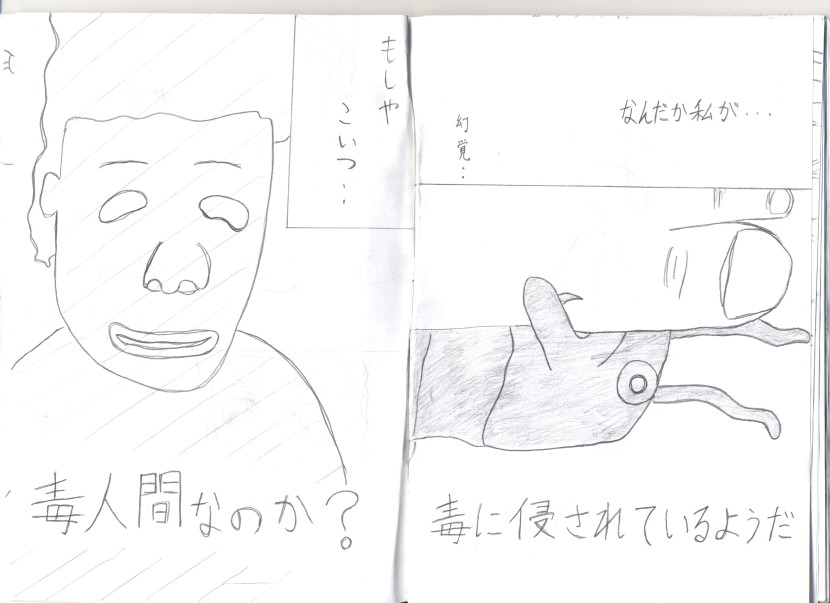 なんだか私が...
幻覚..
毒に侵されているようだ
もしや
こいつ...
毒人間なのか？